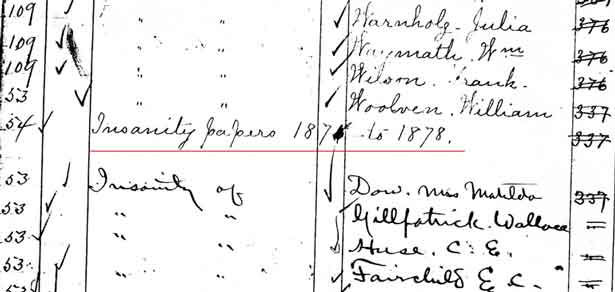 109 " " Warnholg. Julia 376
109 " " Waymath. Wm 376
109 " " Wilson. Frank. 376
53 " " Woolven. William 337
54 Insanity papers 187 to 1878. 337
53 Insanity of Dow. Miss Matilda 337
53 " " Gillpatrick. Wallace =
53 " " Huse. C. E. =
53 " " Fairchild E. C. =